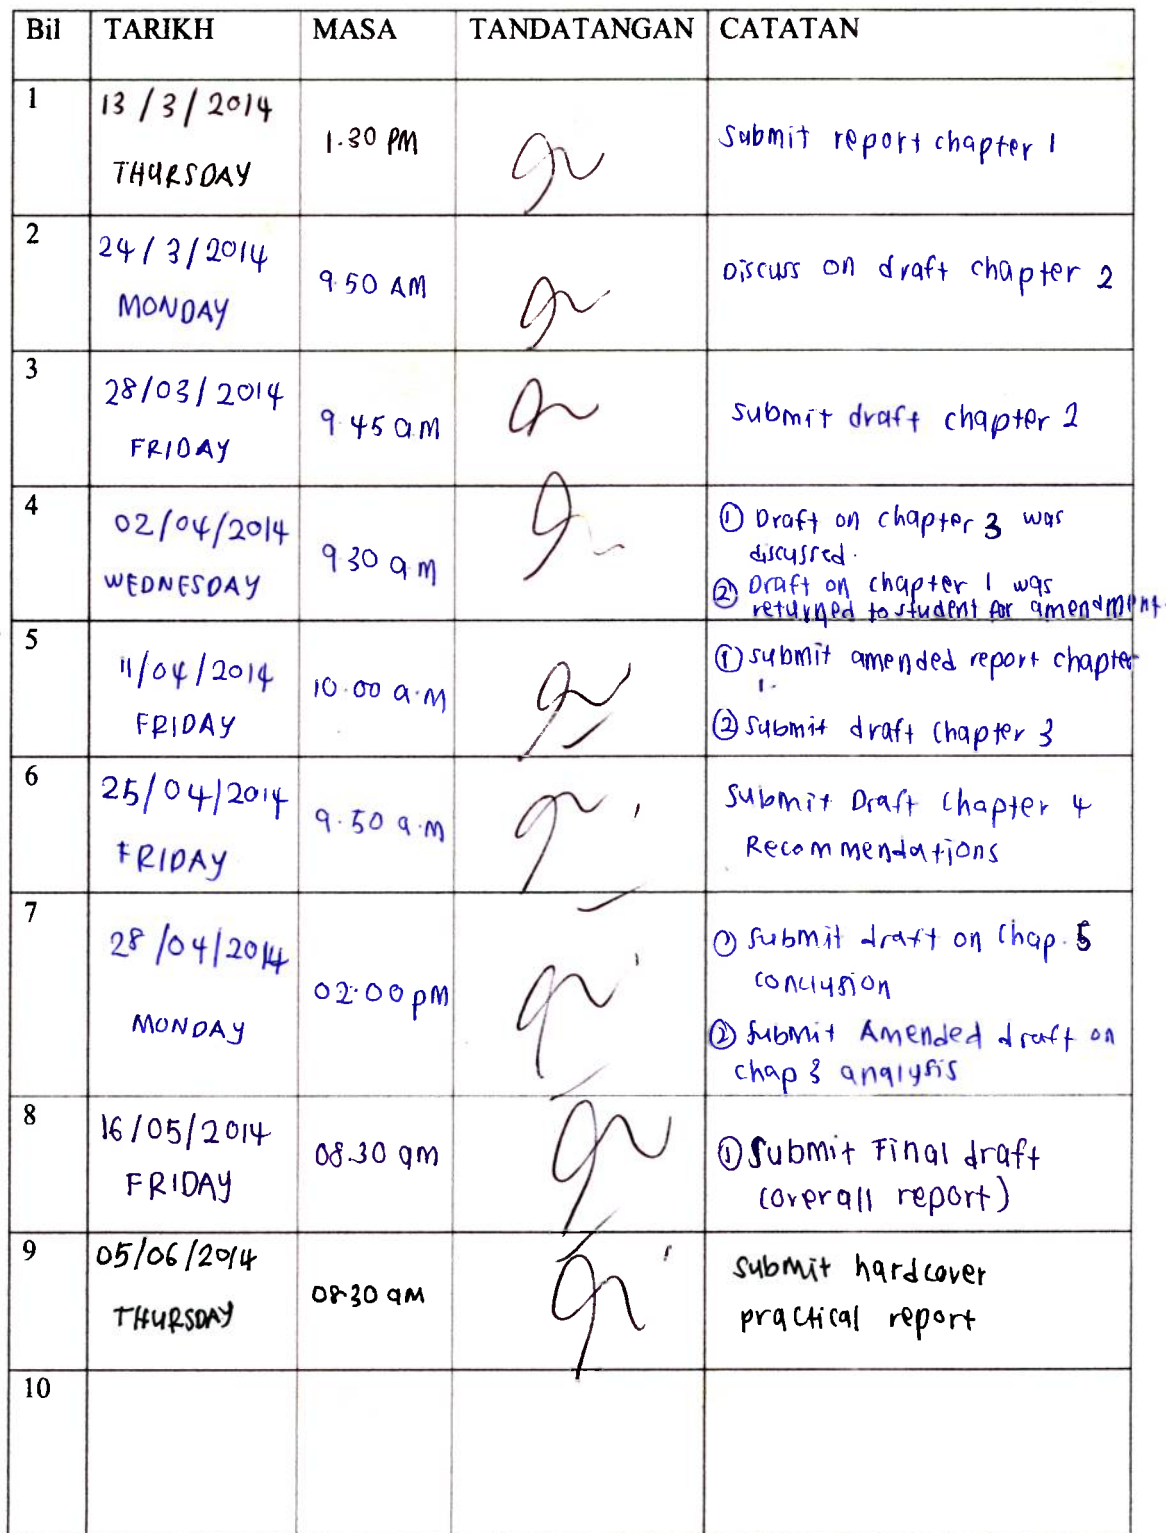 Bil TARIKH MASA TANDATANGAN CATATAN
1
13/3/2014
THURSDAY
1.30 PM
Submit report chapter 1
2
24/3/2014
MONDAY
9.50 AM
Discuss on draft chapter 2
3
28/03/2014
FRIDAY
9 45 am
Submit draft chapter 2
4
02/04/2014
WEDNESDAY
9 30 am
① Draft on chapter 3 was
discussed.
② Draft on chapter 1 was
returned to student for amendment.
5
11/04/2014
FRIDAY
10.00 a.m
① submit amended report chapter
1.
② submit draft chapter 3
6
25/04/2014
FRIDAY
9.50 a.m
Submit Draft Chapter 4
Recommendations
7
28/04/2014
MONDAY
02:00 pm
① Submit draft on Chap. 5
conclusion
② Submit Amended draft on
chap 3 analysis
8
16/05/2014
FRIDAY
08.30 am
① Submit Final draft
(overall report)
9
05/06/2014
THURSDAY
08.30 am
Submit hardcover
practical report
10